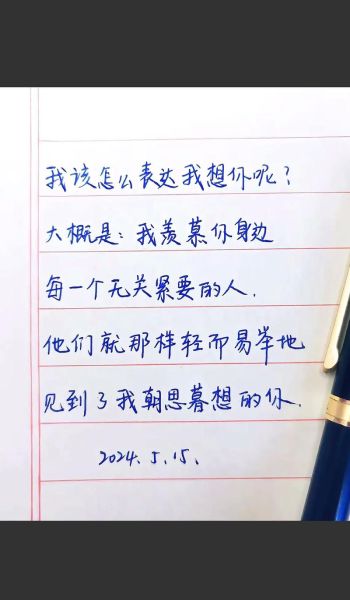 我该怎么表达我想你呢?
大概是:我羡慕你身边
每一个无关紧要的人.
他们就那样轻而易举地
见到了我朝思暮想的你.
2024.5.15.